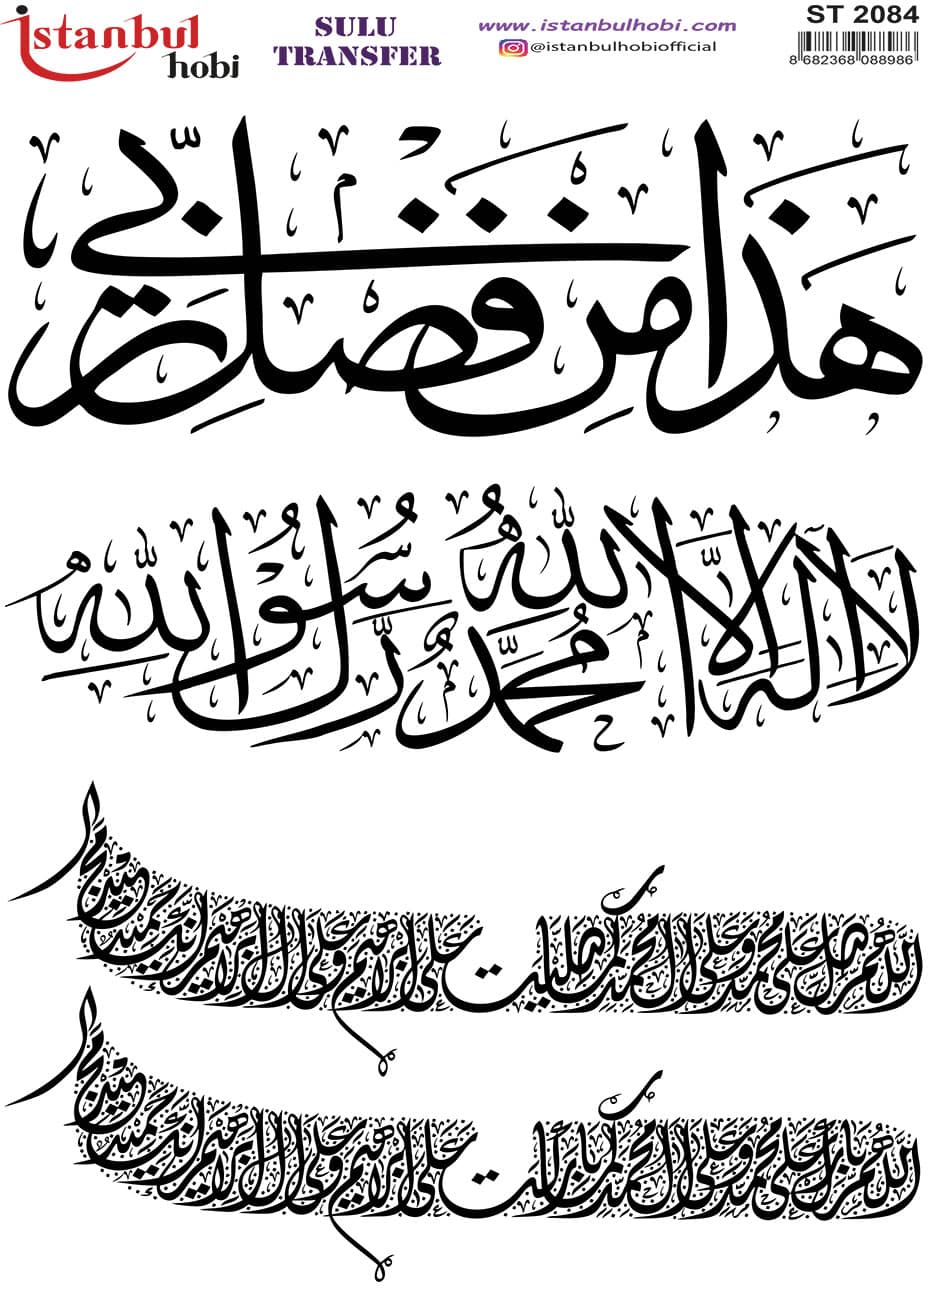 istanbul hobi
SULU TRANSFER
www.istanbulhobi.com
@istanbulhobiofficial
ST 2084
8 682368 088986
هَذَا مِنْ فَضْلِ رَبِّي
لَا إِلٰهَ إِلَّا اللّٰهُ مُحَمَّدٌ رَسُولُ اللّٰهِ
اللهم صل على محمد وعلى ال محمد كما صليت على ابراهيم وعلى ال ابراهيم انك حميد مجيد
اللهم بارك على محمد وعلى ال محمد كما باركت على ابراهيم وعلى ال ابراهيم انك حميد مجيد